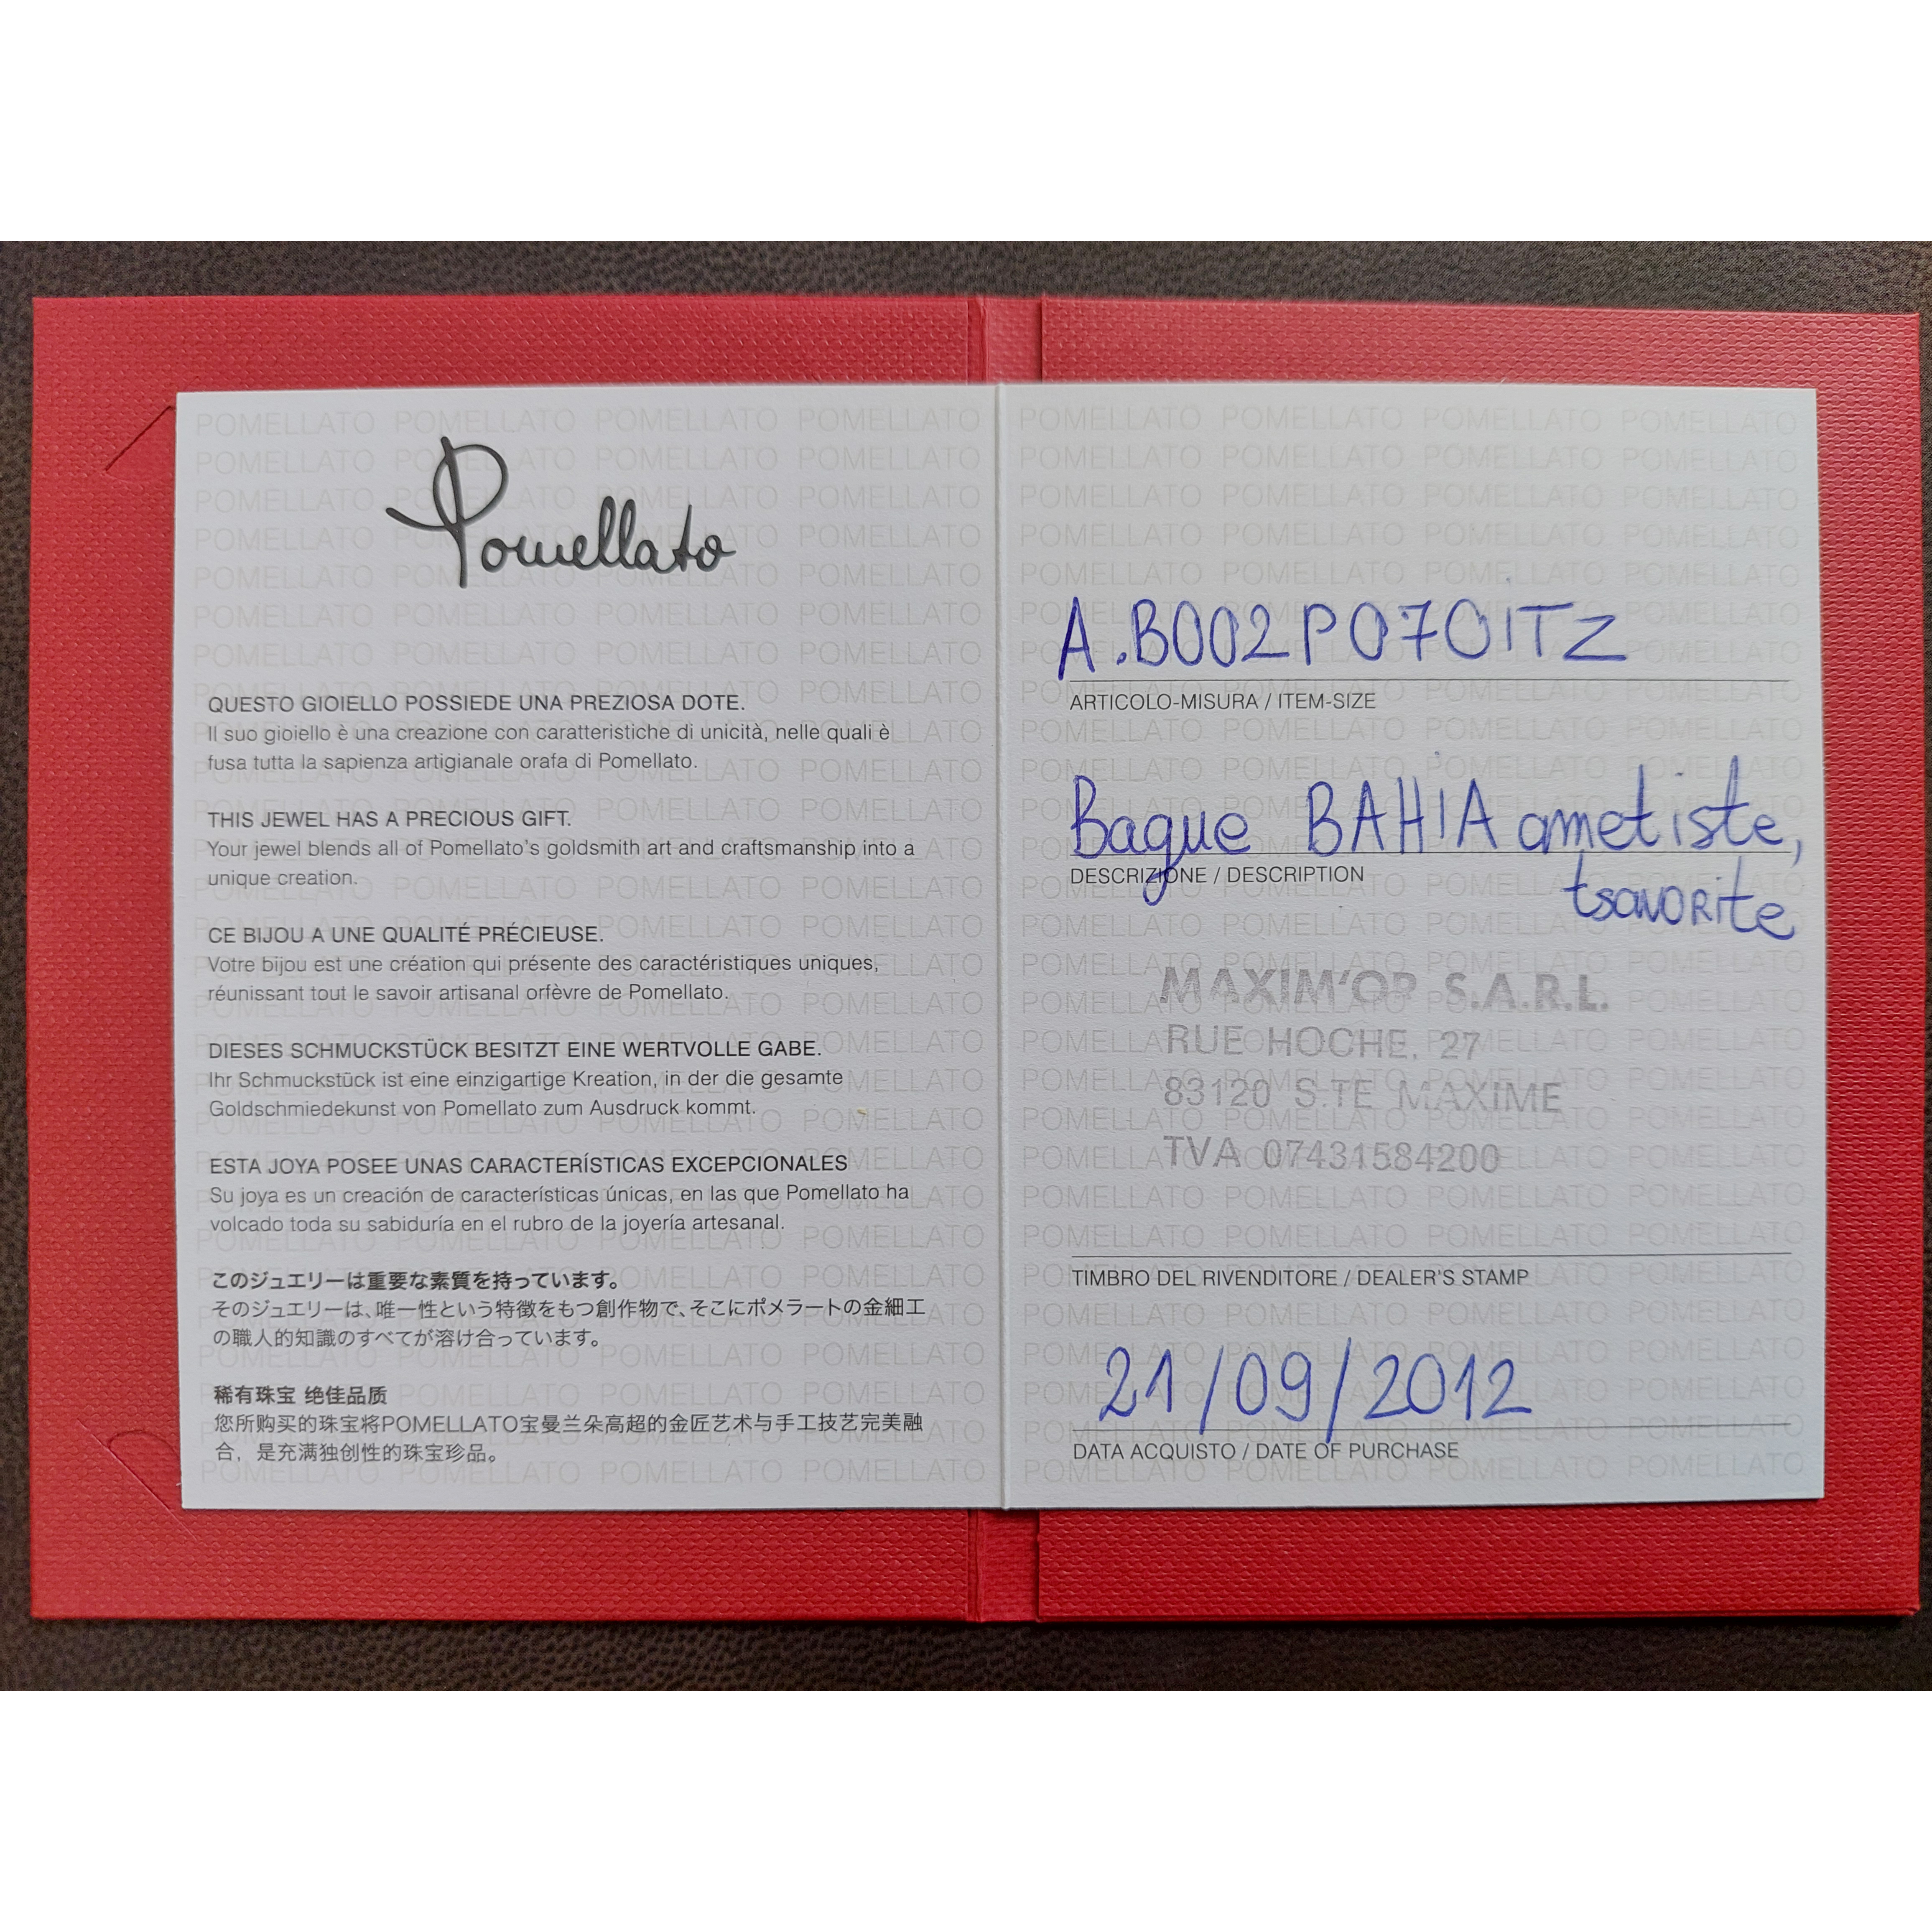 Pomellato
QUESTO GIOIELLO POSSIEDE UNA PREZIOSA DOTE.
Il suo gioiello è una creazione con caratteristiche di unicità, nelle quali è
fusa tutta la sapienza artigianale orafa di Pomellato.
THIS JEWEL HAS A PRECIOUS GIFT.
Your jewel blends all of Pomellato's goldsmith art and craftsmanship into a
unique creation.
CE BIJOU A UNE QUALITÉ PRÉCIEUSE.
Votre bijou est une création qui présente des caractéristiques uniques,
réunissant tout le savoir artisanal orfèvre de Pomellato.
DIESES SCHMUCKSTÜCK BESITZT EINE WERTVOLLE GABE.
Ihr Schmuckstück ist eine einzigartige Kreation, in der die gesamte
Goldschmiedekunst von Pomellato zum Ausdruck kommt.
ESTA JOYA POSEE UNAS CARACTERÍSTICAS EXCEPCIONALES
Su joya es un creación de características únicas, en las que Pomellato ha
volcado toda su sabiduría en el rubro de la joyería artesanal.
このジュエリーは重要な素質を持っています。
そのジュエリーは、唯一性という特徴をもつ創作物で、そこにポメラートの金細工
の職人的知識のすべてが溶け合っています。
稀有珠宝 绝佳品质
您所购买的珠宝将POMELLATO宝曼兰朵高超的金匠艺术与手工技艺完美融
合，是充满独创性的珠宝珍品。
A.B002PO7OITZ
ARTICOLO-MISURA / ITEM-SIZE
Bague BAHIA ametiste,
DESCRIZIONE / DESCRIPTION
tsavorite
MAXIM'OR S.A.R.L.
RUE HOCHE, 27
83120 S.TE MAXIME
TVA 07431584200
TIMBRO DEL RIVENDITORE / DEALER'S STAMP
21/09/2012
DATA ACQUISTO / DATE OF PURCHASE